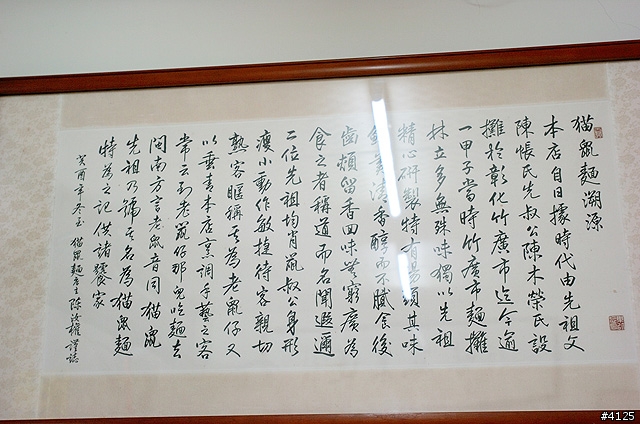 猫鼠麵溯源
本店自日據時代由先祖父
陳悵氏先叔公陳木榮氏設
攤於彰化竹廣市迄今逾
一甲子當時竹廣市麵攤
林立多無殊味獨以先祖
精心研製特有湯頭其味
清香醇而不膩食後
齒頰留香回味無窮廣為
食之者稱道而名聞遐邇
二位先祖均肖鼠叔公身形
瘦小動作敏捷待客親切
熟客暱稱其為老鼠仔又
以垂青本店烹調手藝之客
常云到老鼠仔那兒吃麵去
閩南方言老鼠音同猫鼠
先祖乃號其名為猫鼠麵
特為之記供諸饕家
癸酉年冬至 猫鼠麵店主陳汝權謹誌
#4125